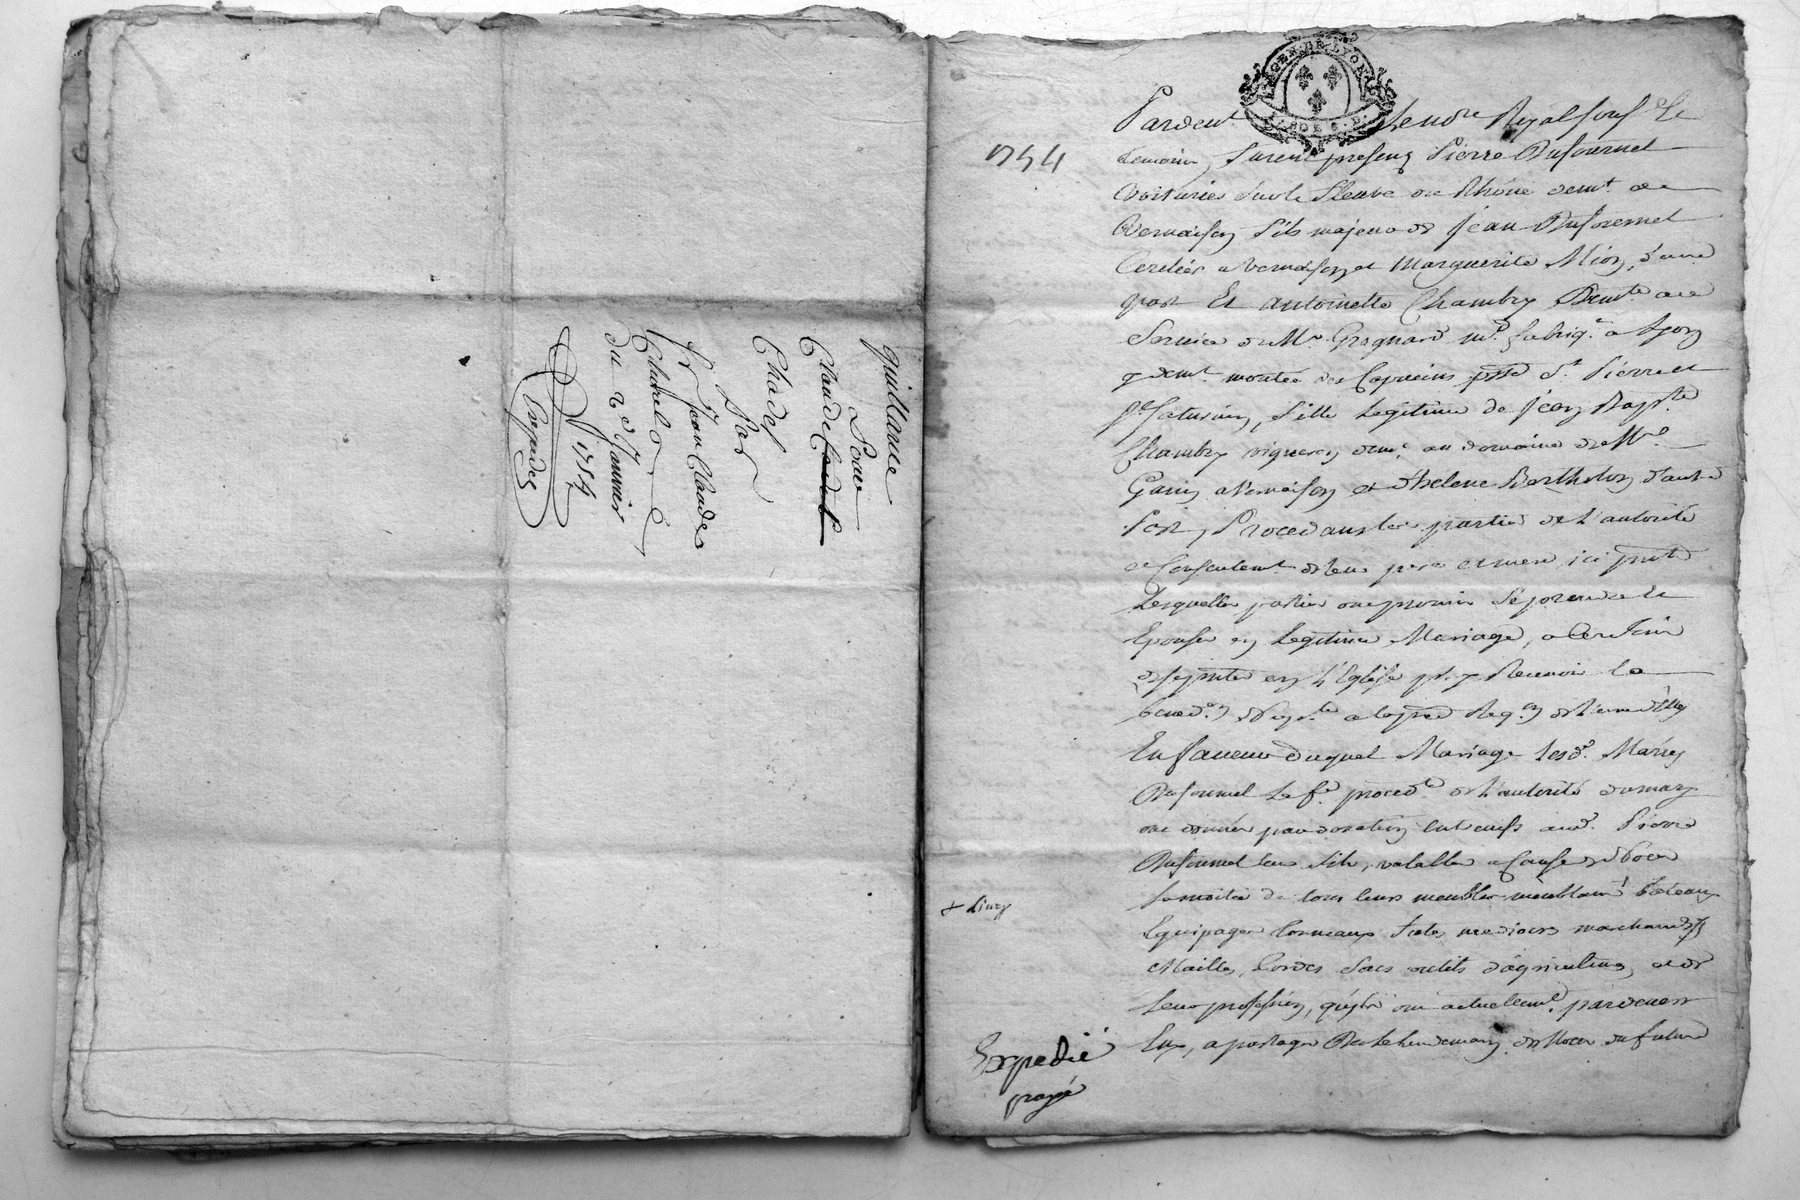 quittance
Pour
Claude
Chadel
Par
Sr Jean Claude
du 2e Janvier
1754
Expediée
GEN. DE LYON
1754
Pardevt Le no.re Royal sousé et
temoins, furent presens Pierre Dufournel
Voiturier sur le fleuve de Rhône demt a
Vernaison fils majeur de Jean Dufournel
a Vernaison et Marguerite Mion, d'une
part Et antoinette Chambry Demte au
Service de Mr Grognard md fabriqt a Lyon
y demt montée des Capucins psse St Pierre et
St Saturnin, fille Legitime de Jean Bapte
Chambry vigneron demt au domaine de Mr
Ganin a Vernaison et d'helene Bertholon d'autre
Part, Procedans les parties de l'autorité
et Consentemt de leur pere et mere ici prnts
Lesquelles parties ont promis se prendre et
Epouser en Legitime Mariage, a
se pnter en l'Eglise pr y Recevoir la
bened.on Nup.le a la pre Req.on de l'une d'elles
En faveur duquel Mariage lesd. Mariés
Dufournel la fe proced.te de l'autorité du mary
ont donné par donation entre vifs aud. Pierre
Dufournel leur fils, valable a Cause de Noces
la moitié de tous leurs meubles meublans bateaux
Equipages tonneaux marchandises
Mailles, Cordes Sacs outils d'agriculture, et de
leur profession, qu'ils ont actuellemt pardevers
Eux, a partager Des le lendemain des Noces du futur
Expedié
payé